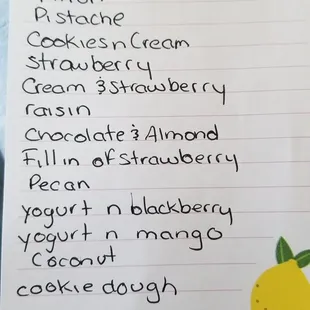 Pistache
Cookies n Cream
Strawberry
Cream & Strawberry
raisin
Chocolate & Almond
Fill in of strawberry
Pecan
yogurt n blackberry
yogurt n mango
Coconut
cookie dough